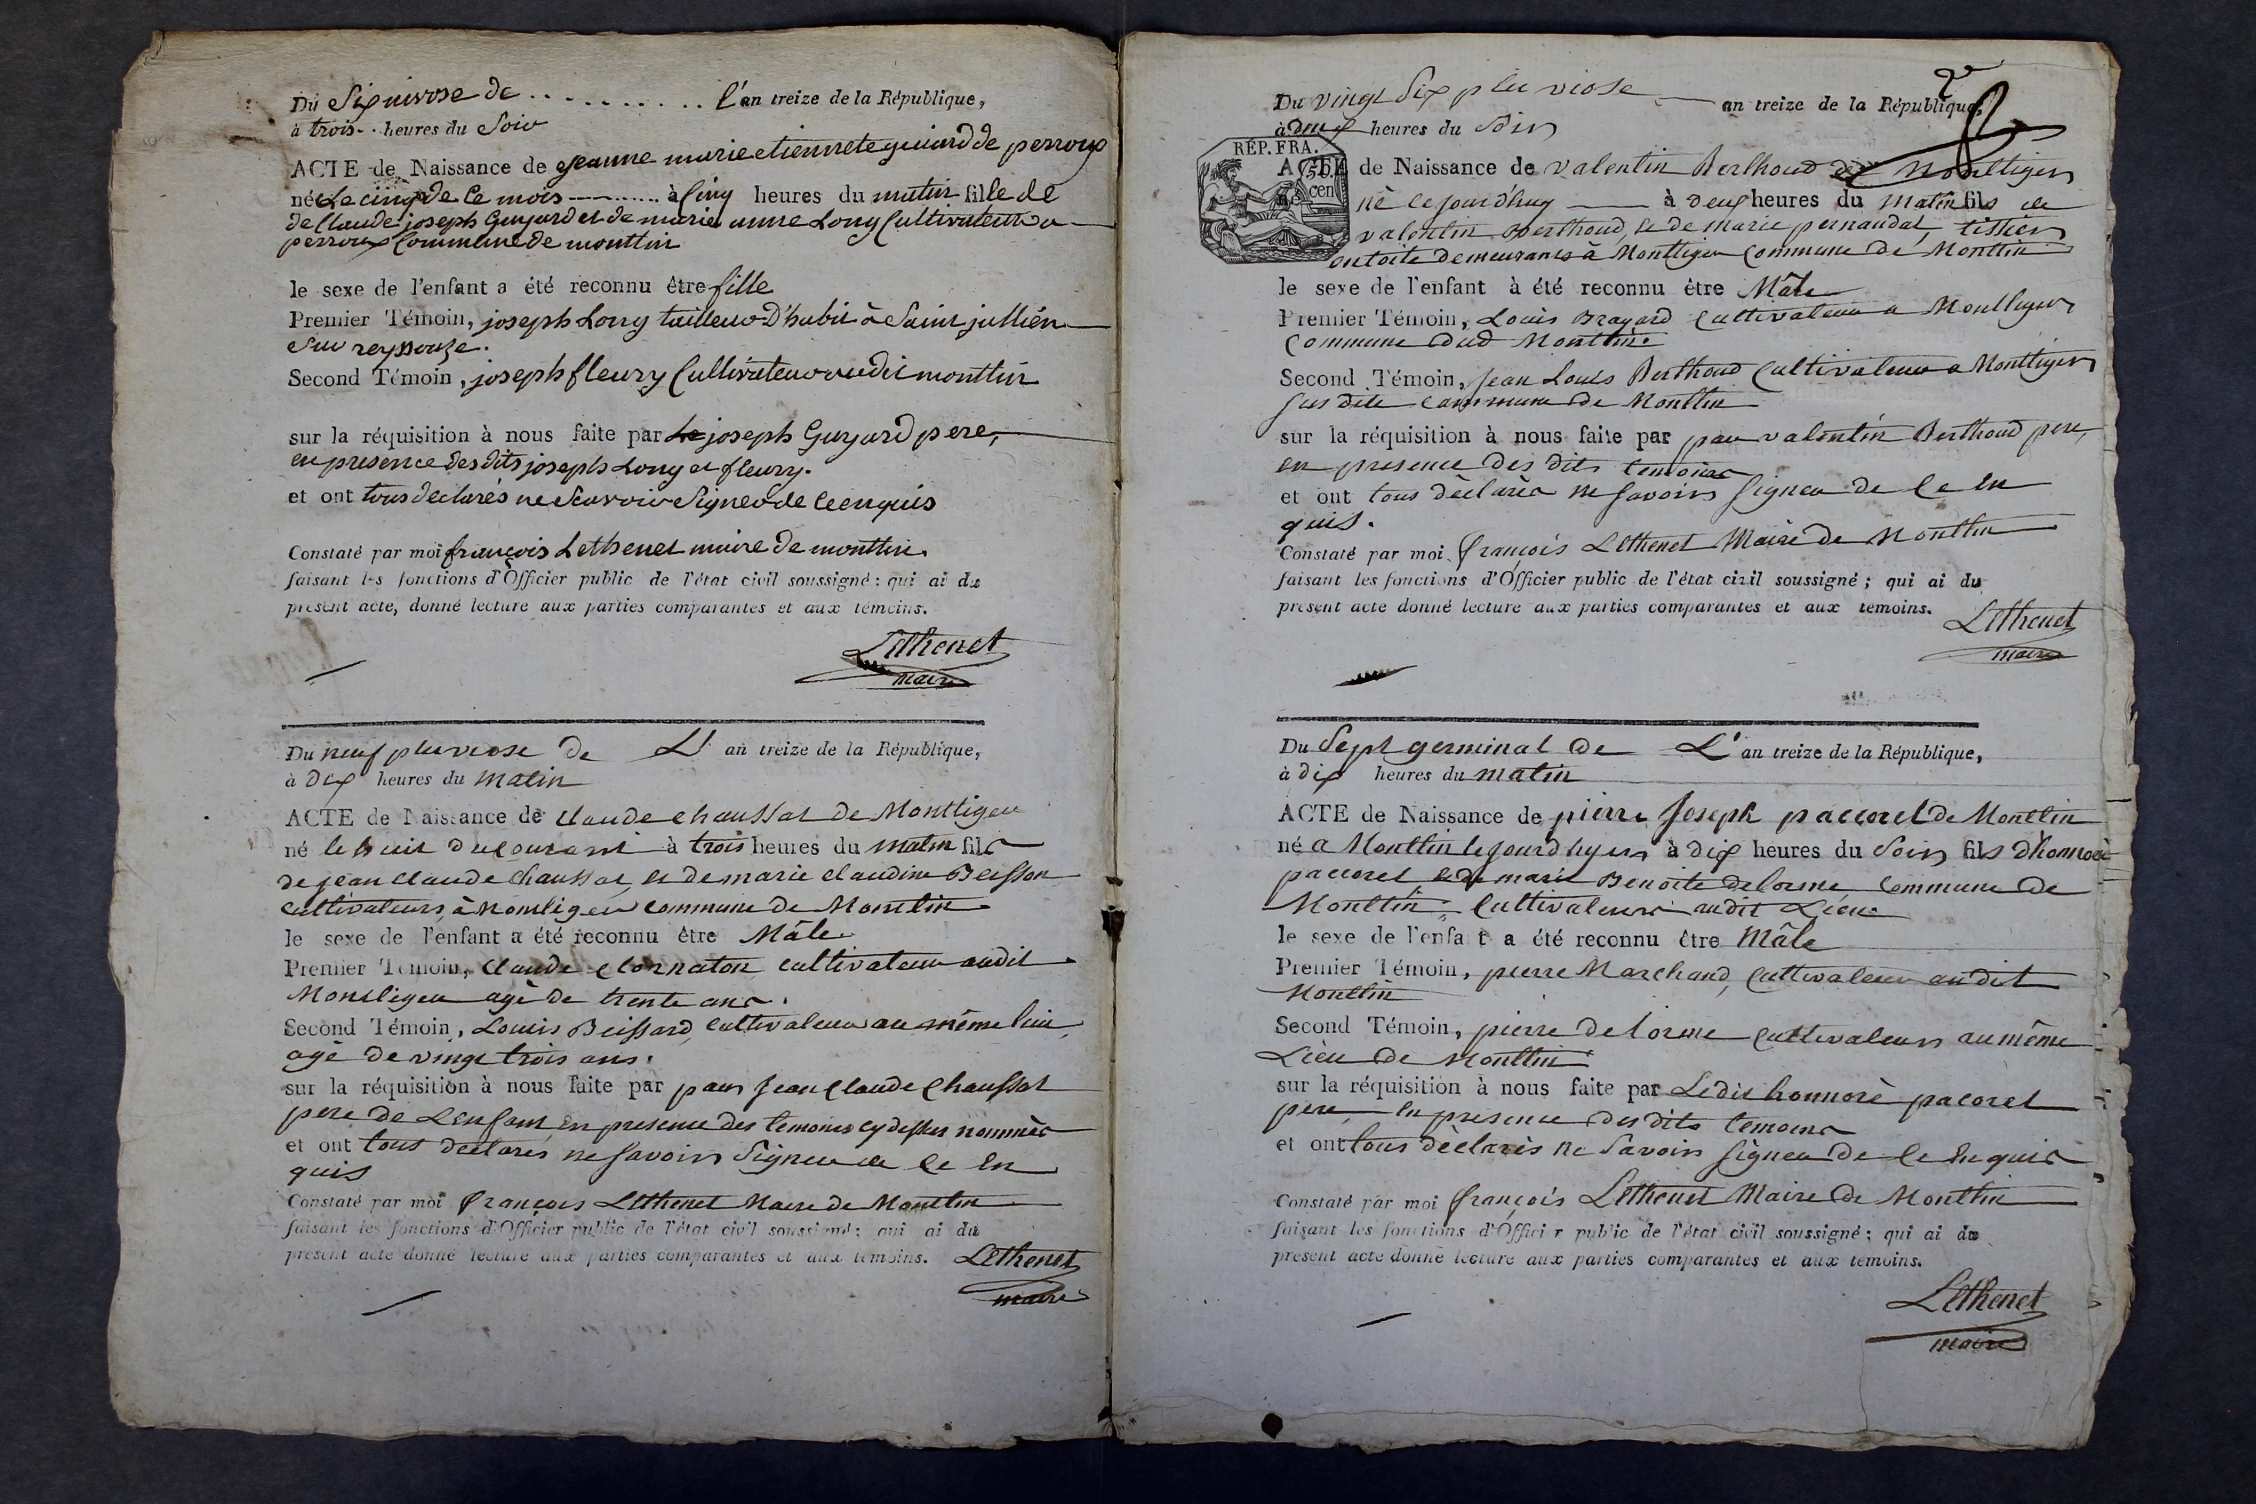 Du Six nivose de . . . . . . . . . . l'an treize de la République,
à trois . . heures du Soir
ACTE de Naissance de jeanne marie etiennete guiard de perroux
né Le cinq de ce mois ---------- à Cinq heures du matin fille de
de Claude joseph Guyard et de marie anne Long Cultivateur a
perroux Commune de montlin
le sexe de l'enfant a été reconnu être fille
Premier Témoin, joseph Long tailleur D'habit à Saint jullien
Sur reyssouze.
Second Témoin, joseph fleury Cultivateur audit montlin
sur la réquisition à nous faite par Le joseph Guyard pere,
en presence des dits joseph Long et fleury.
et ont tous declarés ne Scavoir Signer de ce enquis
Constaté par moi françois Lethenet maire de montlin.
faisant les fonctions d'Officier public de l'état civil soussigné : qui ai du
présent acte, donné lecture aux parties comparantes et aux témoins.
Lethenet
maire
Du neuf pluviose de L' an treize de la République,
à dix heures du matin
ACTE de Naissance de Claude Chaussat de Montligeu
né le huit du courant à trois heures du matin fils
de jean Claude Chaussat, et de marie Claudine Beisson
cultivateurs, à Montligeu commune de Montlin
le sexe de l'enfant a été reconnu être Mâle
Premier Témoin, Claude Cornaton cultivateur audit
Montligeu agé de trente ans.
Second Témoin, Louis Beissard, cultivateur au même lieu,
agé de vingt trois ans.
sur la réquisition à nous faite par par Jean Claude Chaussat
pere de L'enfant, en presence des temoins cy dessus nommés
et ont tous declarés ne savoir Signer de ce En
quis
Constaté par moi François Lethenet Maire de Montlin
faisant les fonctions d'Officier public de l'état civil soussigné ; qui ai du
présent acte donné lecture aux parties comparantes et aux témoins.
Lethenet
maire
2e
Du vingt Six pluviose an treize de la République,
à deux heures du Soir
RÉP. FRA.
50
cen
ACTE de Naissance de valentin Berthoud de Montligeu
né ce jourd'huy à deux heures du matin fils de
valentin Berthoud, et de marie pernaudat, tissier
en toile demeurants à Montligeu Commune de Montlin
le sexe de l'enfant à été reconnu être Mâle
Premier Témoin, Louis Brayard Cultivateur a Montligeu
Commune dud Montlin.
Second Témoin, Jean Louis Berthoud Cultivateur a Montligeu
sus dite commune de Montlin
sur la réquisition à nous faite par par valentin Berthoud pere,
en presence des dits temoins
et ont tous dèclarés ne savoir signer de Ce En
quis.
Constaté par moi, François Lethenet Maire de Montlin
faisant les fonctions d'Officier public de l'état civil soussigné ; qui ai du
présent acte donné lecture aux parties comparantes et aux témoins.
Lethenet
maire
Du Sept germinal de L' an treize de la République,
à dix heures du matin
ACTE de Naissance de pierre Joseph paccoret de Montlin
né a Montlin le jourd hyer à dix heures du Soir fils d'honoré
paccoret et de marie Benoite delorme Commune de
Montlin, Cultivateurs audit Lieu.
le sexe de l'enfant a été reconnu être Mâle
Premier Témoin, pierre Marchand, Cultivateur audit
Montlin
Second Témoin, pierre delorme Cultivateur au même
Lieu de Montlin
sur la réquisition à nous faite par Ledit honnoré pacoret
pere, en presence des dits temoins
et ont tous dèclarés ne Savoir signer de Ce Enquis
Constaté par moi François Lethenet Maire de Montlin
faisant les fonctions d'Officier public de l'état civil soussigné ; qui ai du
présent acte donné lecture aux parties comparantes et aux témoins.
Lethenet
maire